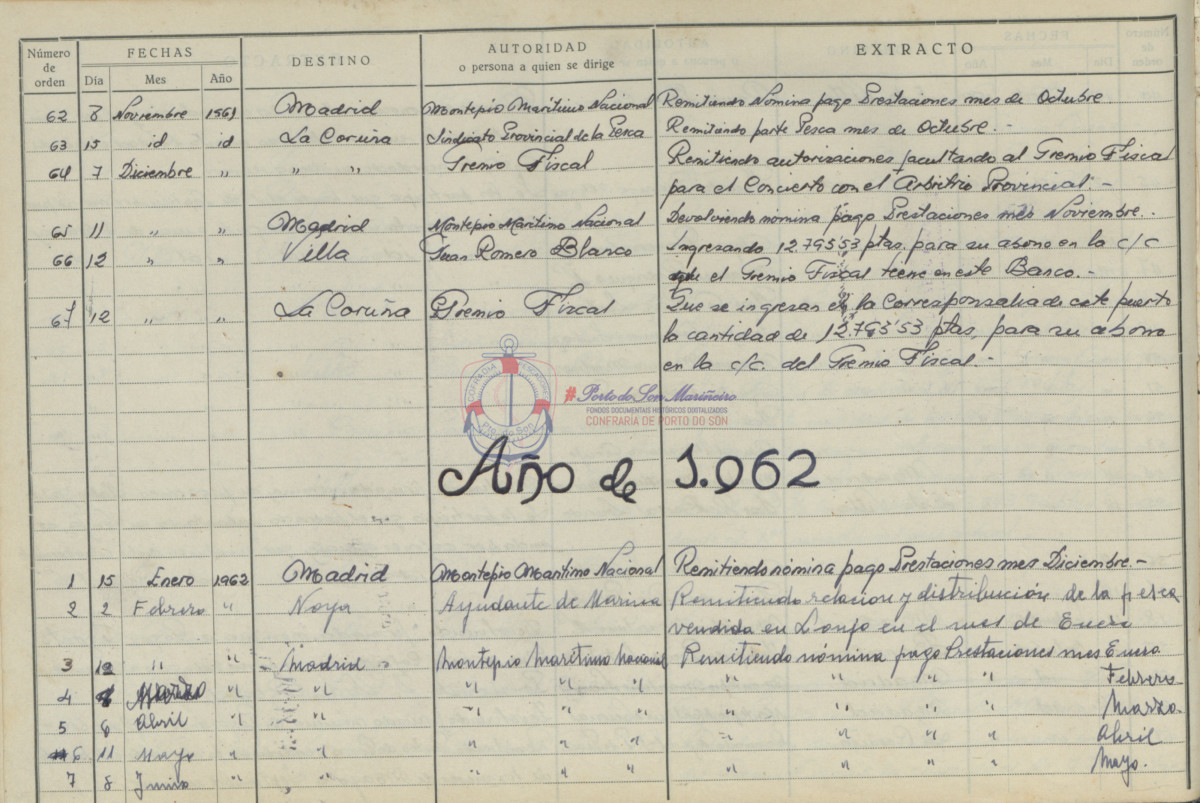 Número de orden FECHAS DESTINO AUTORIDAD o persona a quien se dirige EXTRACTO
Día Mes Año
62 8 Noviembre 1961 Madrid Montepio Maritimo Nacional Remitiendo Nómina pago Prestaciones mes de Octubre.
63 15 id id La Coruña Sindicato Provincial de la Pesca Remitiendo parte Pesca mes de Octubre. -
64 7 Diciembre " " " Gremio Fiscal Remitiendo autorizaciones facultando al Gremio Fiscal
para el Concierto con el Arbitrio Provincial. -
65 11 " " Madrid Montepio Maritimo Nacional Devolviendo nómina pago Prestaciones mes Noviembre. -
66 12 " " Villa Juan Romero Blanco Ingresando 12.795'53 ptas. para su abono en la c/c
que el Gremio Fiscal tiene en este Banco. -
67 12 " " La Coruña Gremio Fiscal Que se ingresan en la Corresponsalia de este puerto
la cantidad de 12.793'53 ptas, para su abono
en la c/c. del Gremio Fiscal. -
COFRADIA PESCADORES
Pto. do Son
#Porto do Son Mariñeiro
FONDOS DOCUMENTAIS HISTÓRICOS DIXITALIZADOS
CONFRARÍA DE PORTO DO SON
Año de 1.962
1 15 Enero 1962 Madrid Montepio Maritimo Nacional Remitiendo nómina pago Prestaciones mes Diciembre. -
2 2 Febrero " Noya Ayudante de Marina Remitiendo relación y distribución de la pesca
vendida en Lonja en el mes de Enero
3 12 " " Madrid Montepio Maritimo Nacional Remitiendo nómina pago Prestaciones mes Enero
4 Marzo " " " " " " " " " Febrero
5 6 Abril " " " " " " " " " Marzo.
6 11 Mayo " " " " " " " " " Abril
7 8 Junio " " " " " " " " " Mayo.